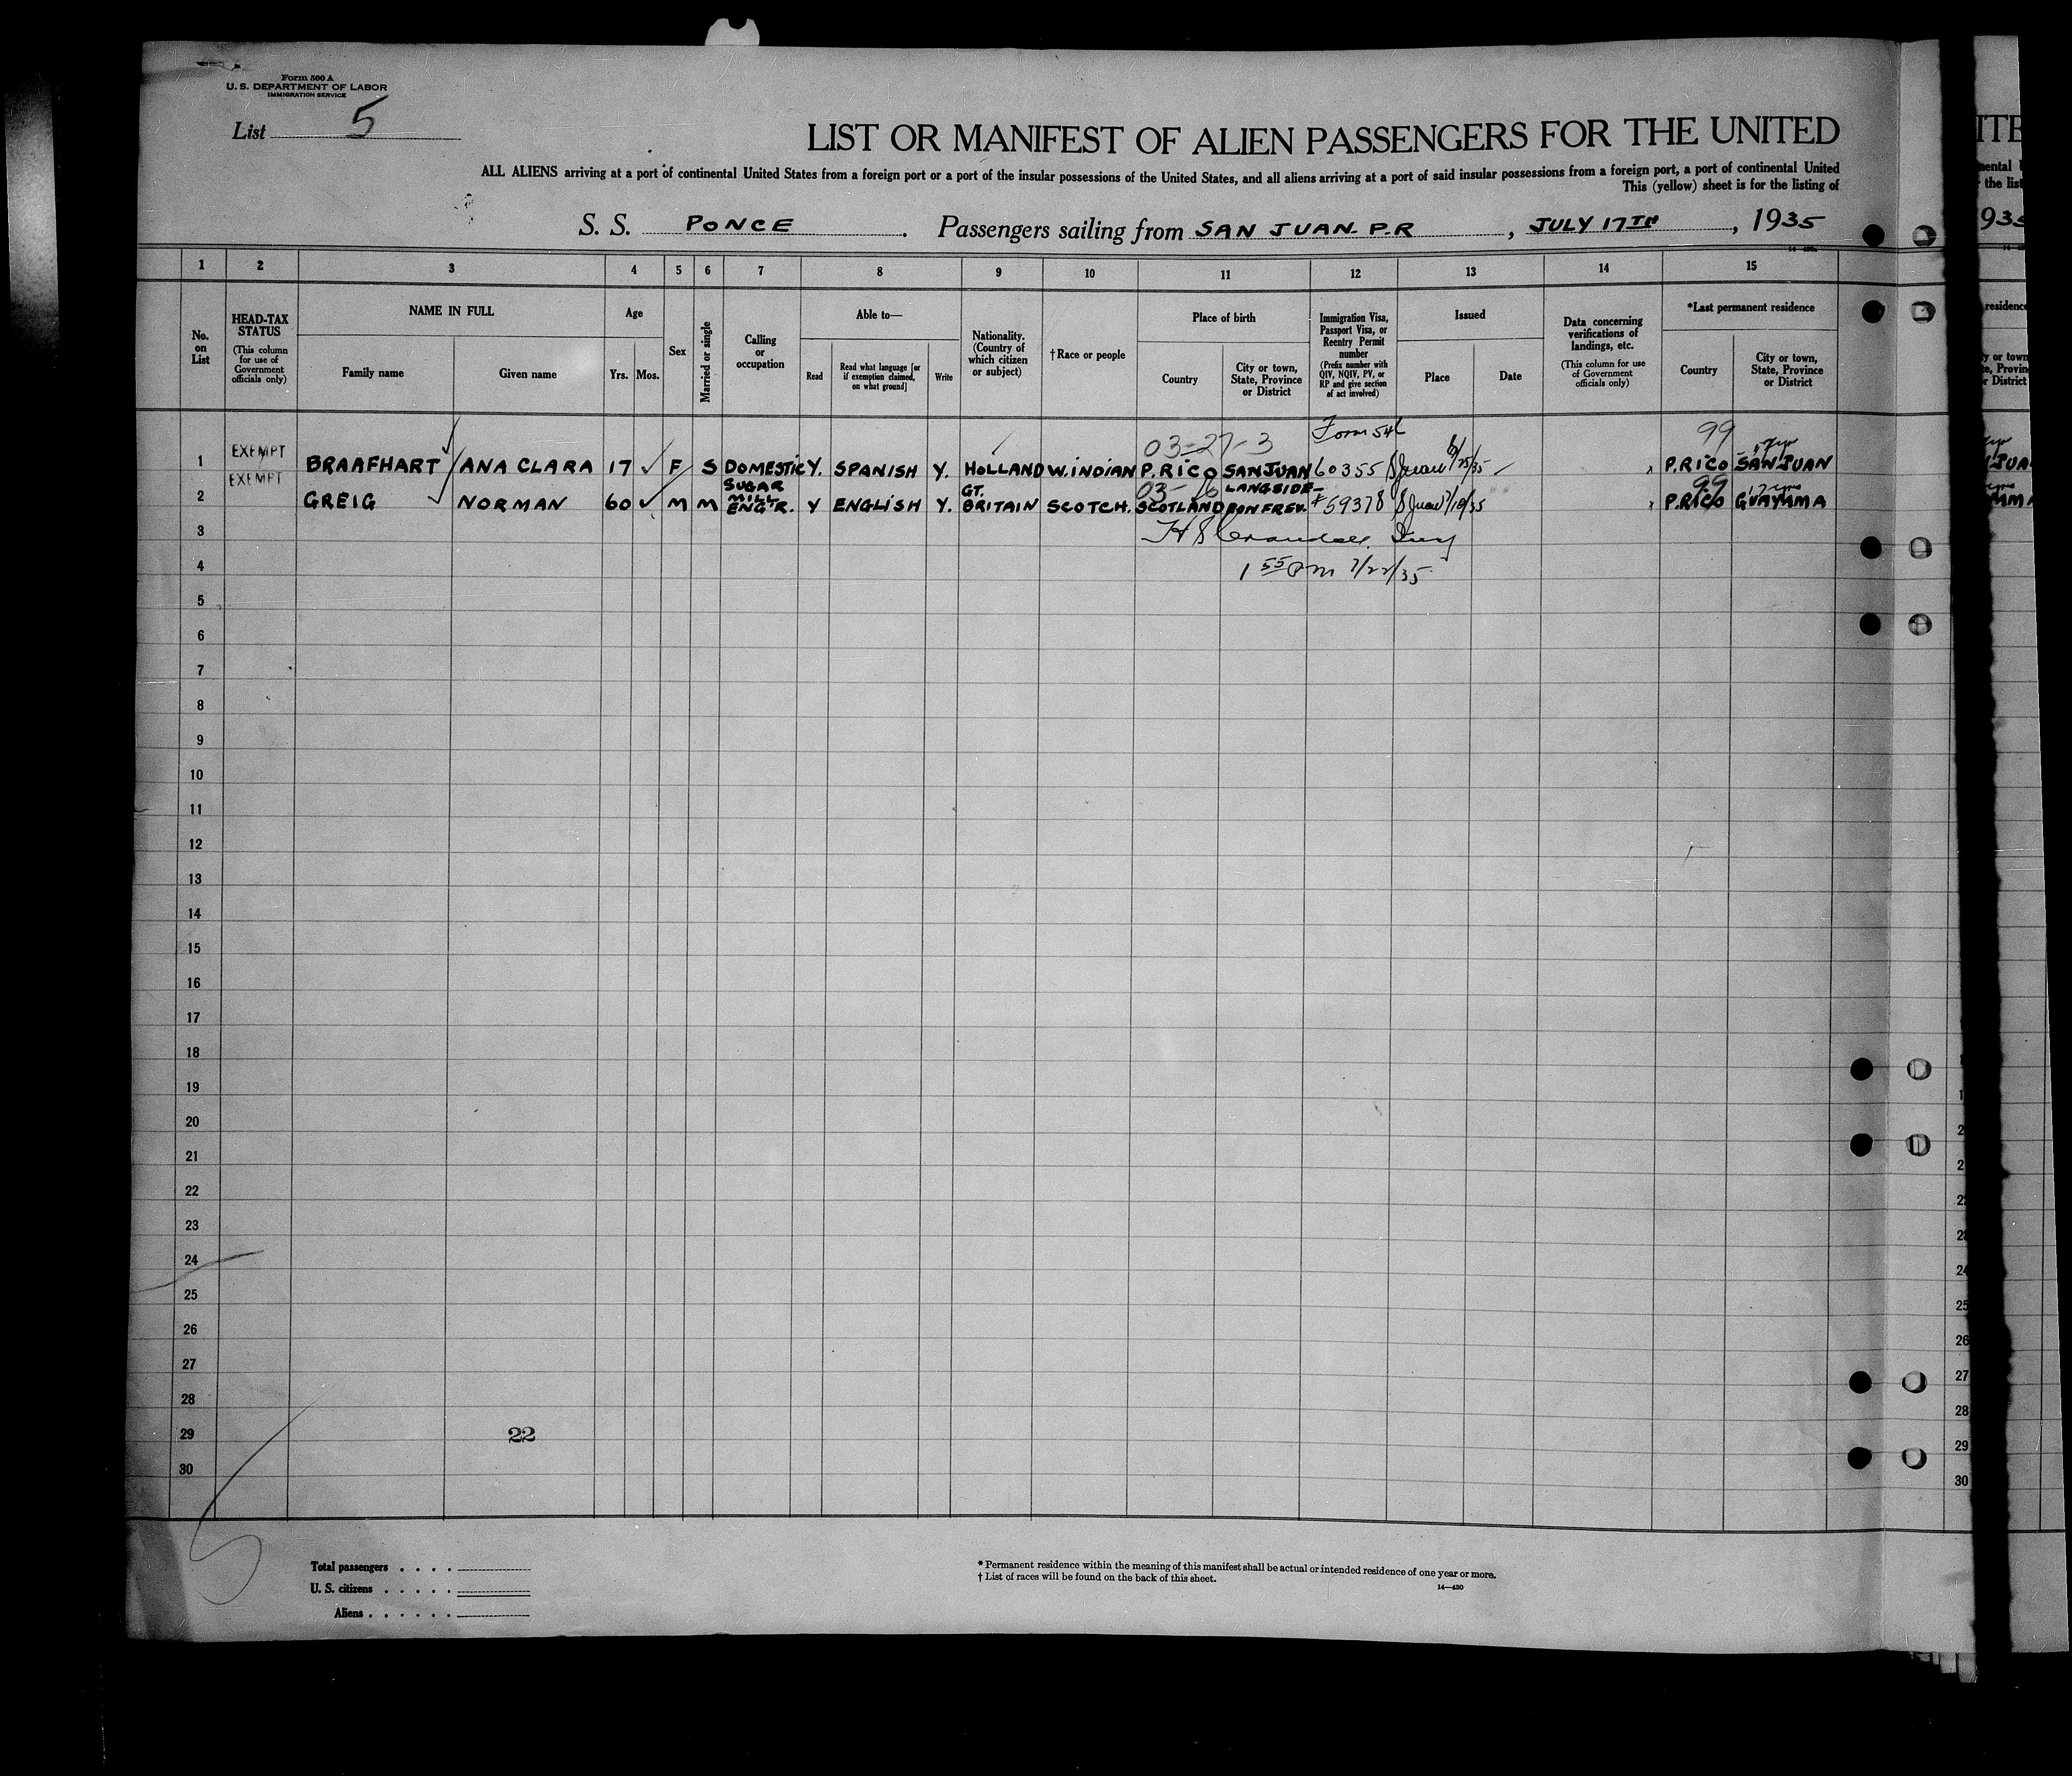 Form 500 A
U. S. DEPARTMENT OF LABOR
IMMIGRATION SERVICE
List 5
LIST OR MANIFEST OF ALIEN PASSENGERS FOR THE UNITED
ALL ALIENS arriving at a port of continental United States from a foreign port or a port of the insular possessions of the United States, and all aliens arriving at a port of said insular possessions from a foreign port, a port of continental United
This (yellow) sheet is for the listing of
S. S. PONCE. Passengers sailing from SAN JUAN. P.R, JULY 17TH, 1935
1 2 3 4 5 6 7 8 9 10 11 12 13 14 15
No. on List
HEAD-TAX STATUS
(This column for use of Government officials only)
NAME IN FULL
Family name
Given name
Age
Yrs. Mos.
Sex
Married or single
Calling or occupation
Able to—
Read
Read what language [or if exemption claimed, on what ground]
Write
Nationality. (Country of which citizen or subject)
†Race or people
Place of birth
Country
City or town, State, Province or District
Immigration Visa, Passport Visa, or Reentry Permit number
(Prefix number with QIV, NQIV, PV, or RP and give section of act involved)
Issued
Place
Date
Data concerning verifications of landings, etc.
(This column for use of Government officials only)
*Last permanent residence
Country
City or town, State, Province or District
03-27-3 Form 546 99
1 EXEMPT BRAAFHART ANA CLARA 17 F S DOMESTIC Y. SPANISH Y. HOLLAND W. INDIAN P. RICO SAN JUAN 60355 S Juan 6/25/35 P. RICO SAN JUAN
2 EXEMPT GREIG NORMAN 60 M M SUGAR MILL ENG'R. Y ENGLISH Y. GT. BRITAIN SCOTCH. SCOTLAND LANGSIDE- #59378 S Juan 7/10/35 99 P. RICO GUAYAMA
3
4 1 55 PM 7/22/35
5
6
7
8
9
10
11
12
13
14
15
16
17
18
19
20
21
22
23
24
25
26
27
28
29 22
30
Total passengers
U. S. citizens
Aliens
* Permanent residence within the meaning of this manifest shall be actual or intended residence of one year or more.
† List of races will be found on the back of this sheet.
14—430